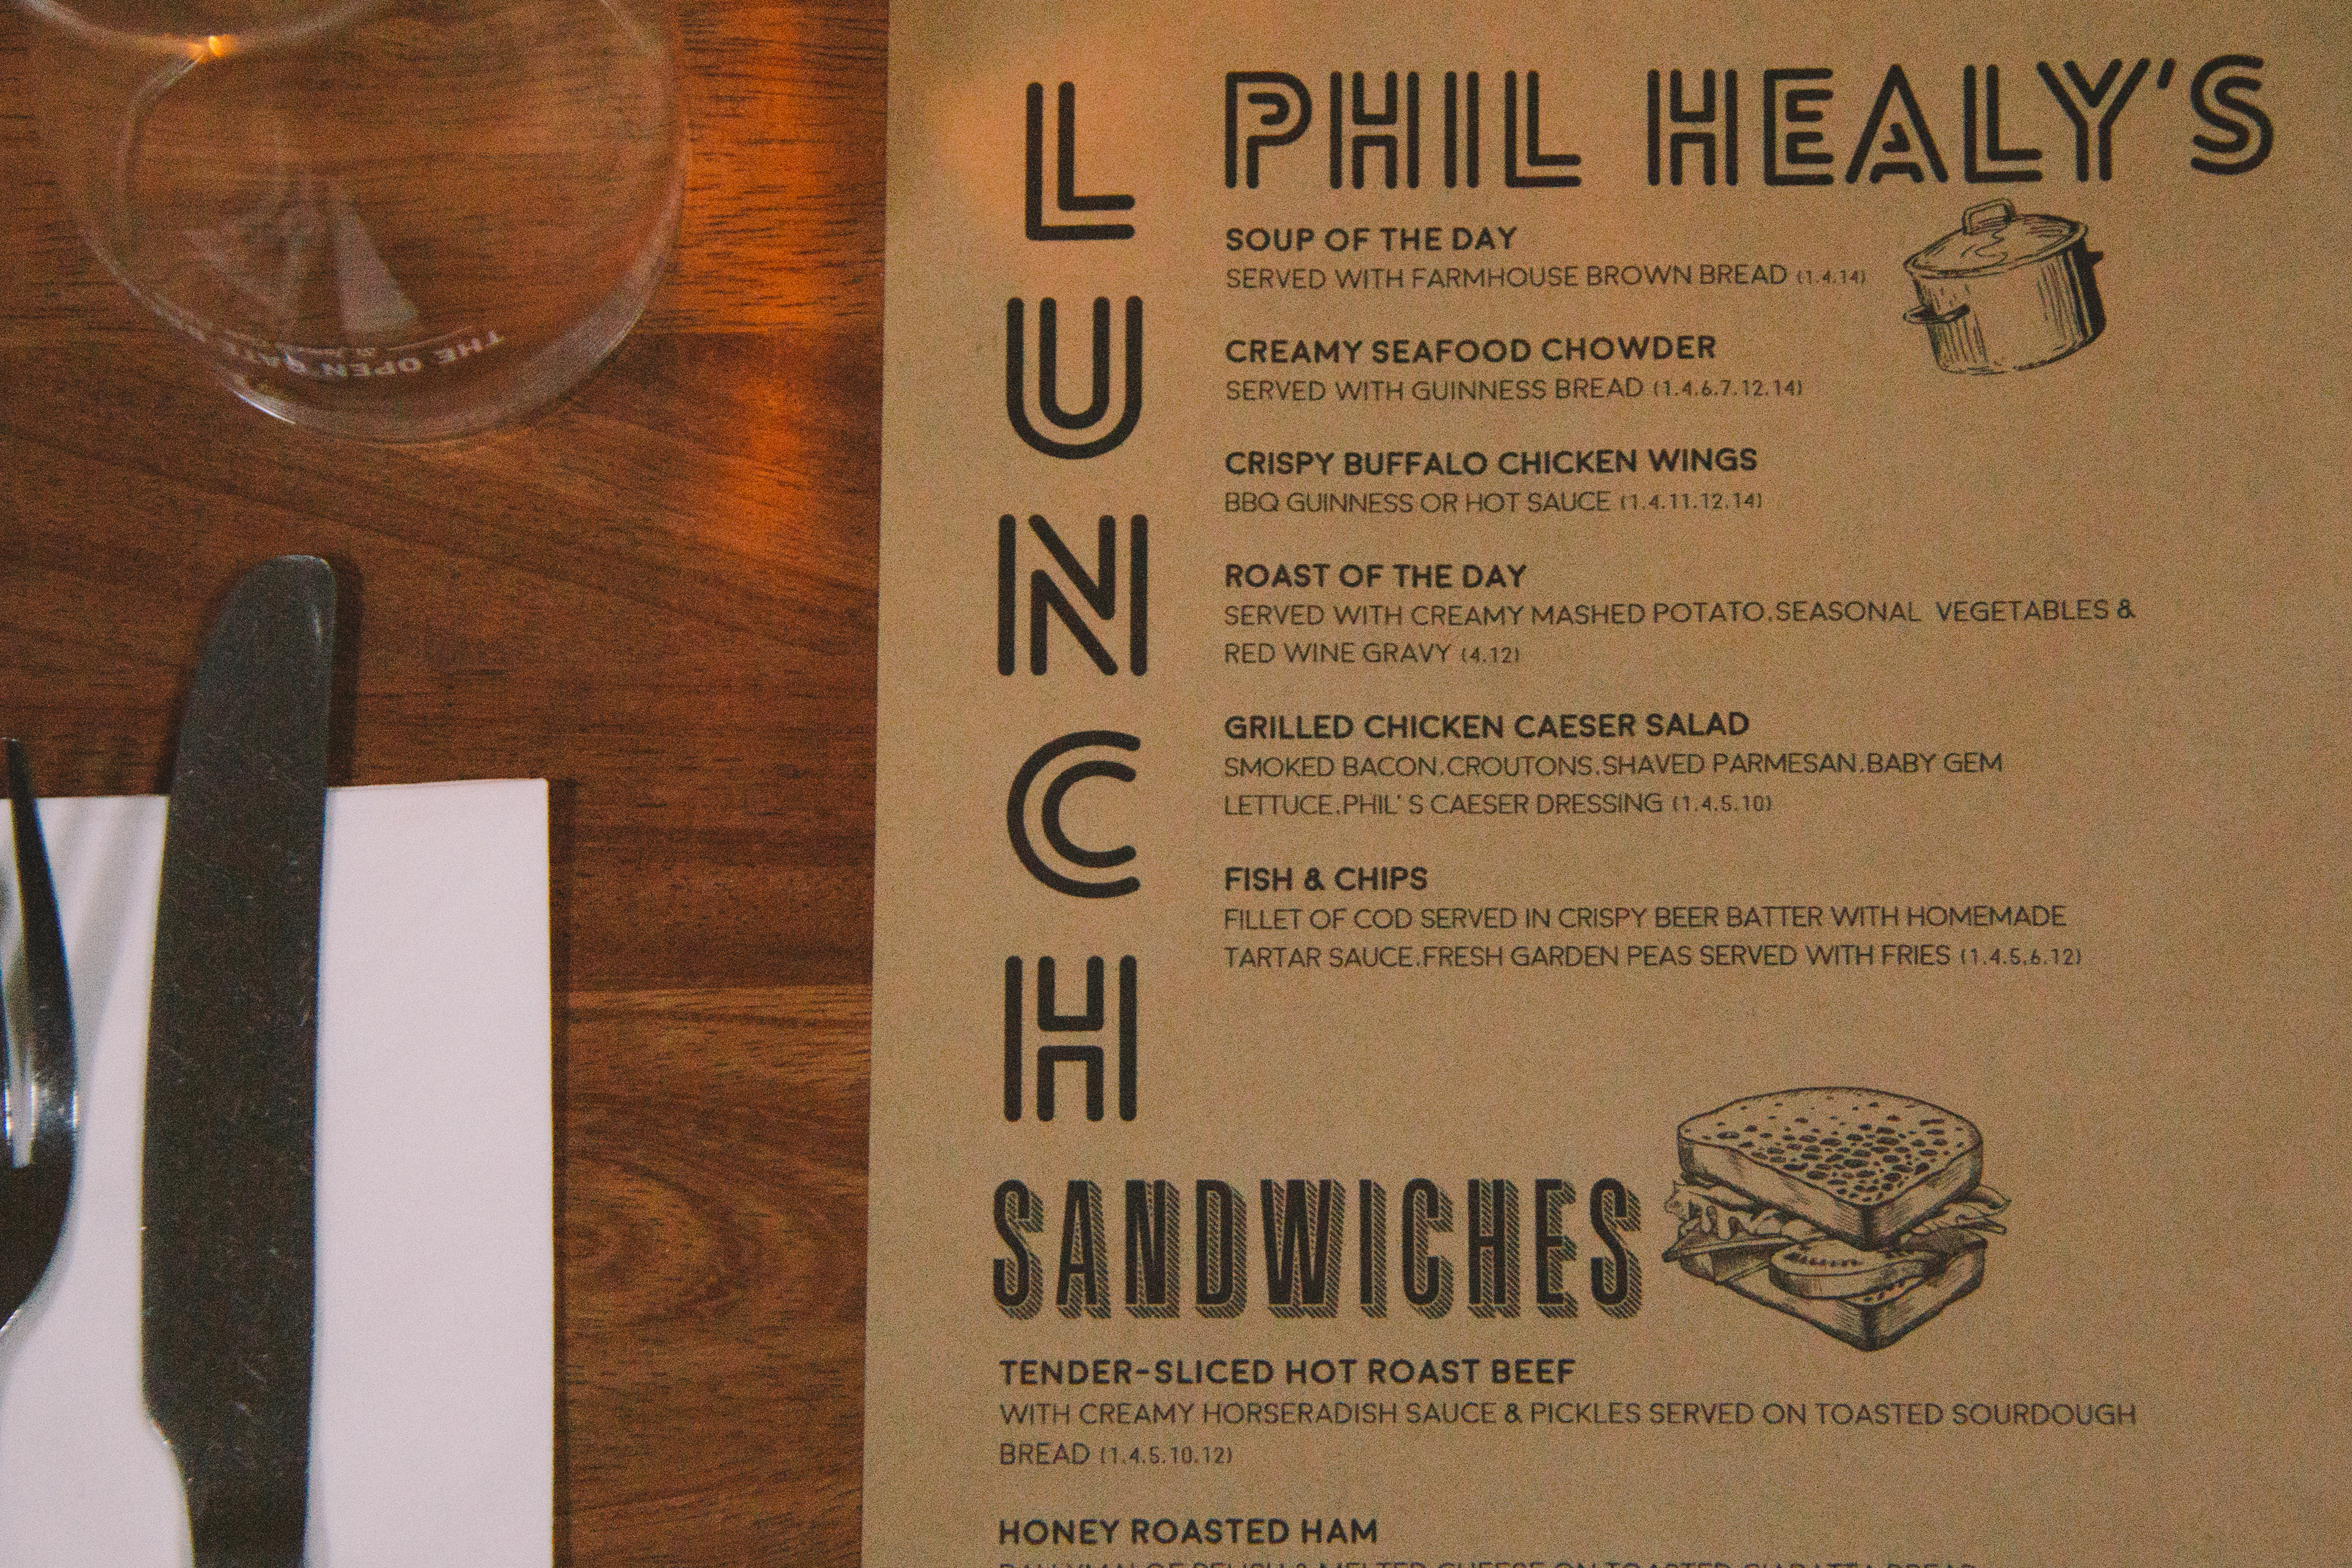 LUNCH
PHIL HEALY'S
SOUP OF THE DAY
SERVED WITH FARMHOUSE BROWN BREAD (1.4.14)
CREAMY SEAFOOD CHOWDER
SERVED WITH GUINNESS BREAD (1.4.6.7.12.14)
CRISPY BUFFALO CHICKEN WINGS
BBQ GUINNESS OR HOT SAUCE (1.4.11.12.14)
ROAST OF THE DAY
SERVED WITH CREAMY MASHED POTATO.SEASONAL VEGETABLES &
RED WINE GRAVY (4.12)
GRILLED CHICKEN CAESER SALAD
SMOKED BACON.CROUTONS.SHAVED PARMESAN.BABY GEM
LETTUCE.PHIL' S CAESER DRESSING (1.4.5.10)
FISH & CHIPS
FILLET OF COD SERVED IN CRISPY BEER BATTER WITH HOMEMADE
TARTAR SAUCE.FRESH GARDEN PEAS SERVED WITH FRIES (1.4.5.6.12)
SANDWICHES
TENDER-SLICED HOT ROAST BEEF
WITH CREAMY HORSERADISH SAUCE & PICKLES SERVED ON TOASTED SOURDOUGH
BREAD (1.4.5.10.12)
HONEY ROASTED HAM
RELISH & MELTED CHEESE ON TOASTED CIABATTA BREAD
THE OPEN GATE